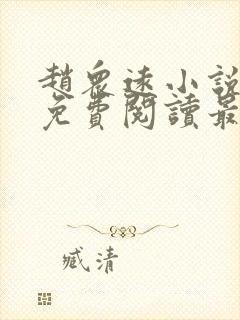 趙衆遠小說
免費閱讀最
臧清